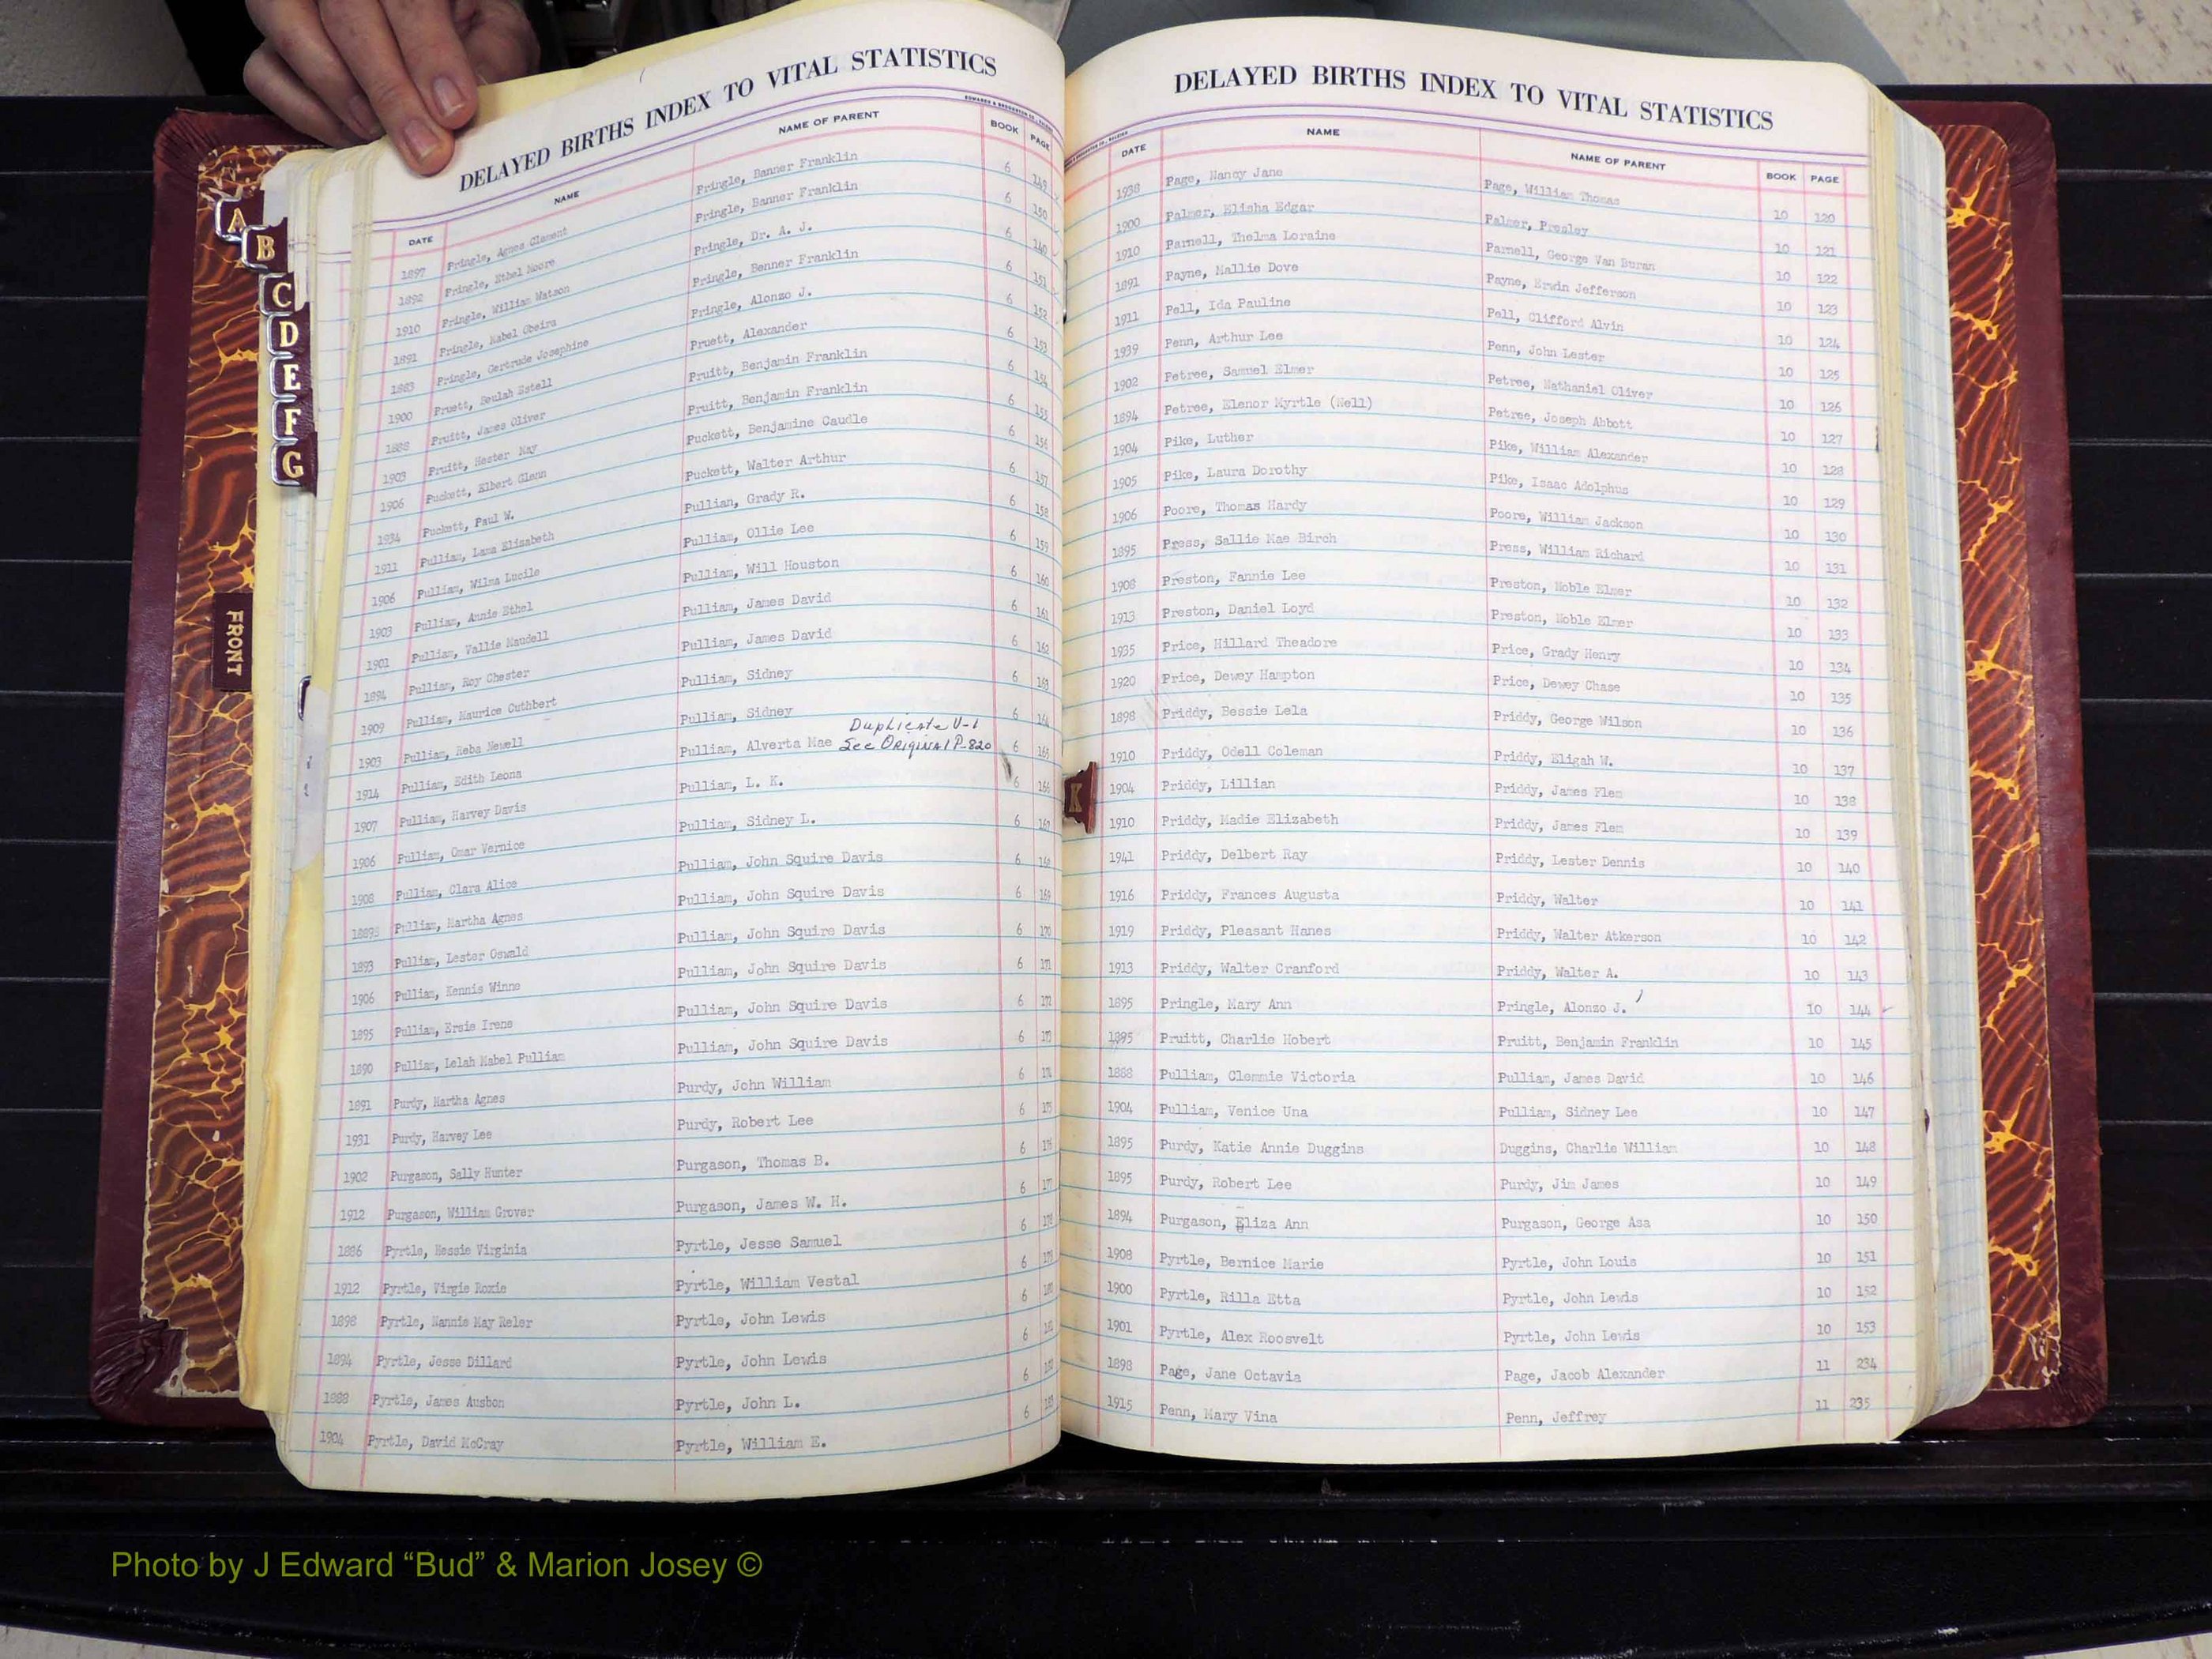 DELAYED BIRTHS INDEX TO VITAL STATISTICS
DATE NAME NAME OF PARENT BOOK PAGE
1897 Pringle, Agnes Clement Pringle, Banner Franklin 6 149
1892 Pringle, Ethel Moore Pringle, Banner Franklin 6 150
1910 Pringle, William Watson Pringle, Dr. A. J. 6 140
1891 Pringle, Mabel Obeira Pringle, Banner Franklin 6 151
1883 Pringle, Gertrude Josephine Pringle, Alonzo J. 6 152
1900 Pruett, Beulah Estell Pruett, Alexander 6 153
1888 Pruitt, James Oliver Pruitt, Benjamin Franklin 6 154
1903 Pruitt, Hester May Pruitt, Benjamin Franklin 6 155
1906 Puckett, Elbert Glenn Puckett, Benjamine Caudle 6 156
1934 Puckett, Paul W. Puckett, Walter Arthur 6 157
1911 Pulliam, Lama Elizabeth Pullian, Grady R. 6 158
1906 Pulliam, Wilma Lucile Pulliam, Ollie Lee 6 159
1903 Pulliam, Annie Ethel Pulliam, Will Houston 6 160
1901 Pulliam, Vallie Maudell Pulliam, James David 6 161
1894 Pulliam, Roy Chester Pulliam, James David 6 162
1909 Pulliam, Maurice Cuthbert Pulliam, Sidney 6 163
1903 Pulliam, Reba Newell Pulliam, Sidney 6 164
Duplicate V-1
1914 Pulliam, Edith Leona Pulliam, Alverta Mae See ORiginAl P-820 6 165
1907 Pulliam, Harvey Davis Pulliam, L. K. 6 166
1906 Pulliam, Omar Vernice Pulliam, Sidney L. 6 167
1908 Pulliam, Clara Alice Pulliam, John Squire Davis 6 168
1889 Pulliam, Martha Agnes Pulliam, John Squire Davis 6 169
1893 Pulliam, Lester Oswald Pulliam, John Squire Davis 6 170
1906 Pulliam, Kennis Winne Pulliam, John Squire Davis 6 171
1895 Pulliam, Ersie Irene Pulliam, John Squire Davis 6 172
1890 Pulliam, Lelah Mabel Pulliam Pulliam, John Squire Davis 6 173
1891 Purdy, Martha Agnes Purdy, John William 6 174
1931 Purdy, Harvey Lee Purdy, Robert Lee 6 175
1902 Purgason, Sally Hunter Purgason, Thomas B. 6 176
1912 Purgason, William Grover Purgason, James W. H. 6 177
1886 Pyrtle, Hessie Virginia Pyrtle, Jesse Samuel 6 178
1912 Pyrtle, Virgie Roxie Pyrtle, William Vestal 6 179
1898 Pyrtle, Nannie May Reler Pyrtle, John Lewis 6 180
1894 Pyrtle, Jesse Dillard Pyrtle, John Lewis 6 181
1888 Pyrtle, James Ausbon Pyrtle, John L. 6 182
1904 Pyrtle, David McCray Pyrtle, William E. 6 183
DELAYED BIRTHS INDEX TO VITAL STATISTICS
DATE NAME NAME OF PARENT BOOK PAGE
1938 Page, Nancy Jane Page, William Thomas 10 120
1900 Palmer, Elisha Edgar Palmer, Presley 10 121
1910 Parnell, Thelma Loraine Parnell, George Van Buran 10 122
1891 Payne, Mallie Dove Payne, Erwin Jefferson 10 123
1911 Pell, Ida Pauline Pell, Clifford Alvin 10 124
1939 Penn, Arthur Lee Penn, John Lester 10 125
1902 Petree, Samuel Elmer Petree, Nathaniel Oliver 10 126
1894 Petree, Elenor Myrtle (Nell) Petree, Joseph Abbott 10 127
1904 Pike, Luther Pike, William Alexander 10 128
1905 Pike, Laura Dorothy Pike, Isaac Adolphus 10 129
1906 Poore, Thomas Hardy Poore, William Jackson 10 130
1895 Press, Sallie Mae Birch Press, William Richard 10 131
1908 Preston, Fannie Lee Preston, Noble Elmer 10 132
1913 Preston, Daniel Loyd Preston, Noble Elmer 10 133
1935 Price, Hillard Theadore Price, Grady Henry 10 134
1920 Price, Dewey Hampton Price, Dewey Chase 10 135
1898 Priddy, Bessie Lela Priddy, George Wilson 10 136
1910 Priddy, Odell Coleman Priddy, Eligah W. 10 137
1904 Priddy, Lillian Priddy, James Flem 10 138
1910 Priddy, Madie Elizabeth Priddy, James Flem 10 139
1941 Priddy, Delbert Ray Priddy, Lester Dennis 10 140
1916 Priddy, Frances Augusta Priddy, Walter 10 141
1919 Priddy, Pleasant Hanes Priddy, Walter Atkerson 10 142
1913 Priddy, Walter Cranford Priddy, Walter A. 10 143
1895 Pringle, Mary Ann Pringle, Alonzo J. 10 144
1895 Pruitt, Charlie Hobert Pruitt, Benjamin Franklin 10 145
1888 Pulliam, Clemmie Victoria Pulliam, James David 10 146
1904 Pulliam, Venice Una Pulliam, Sidney Lee 10 147
1895 Purdy, Katie Annie Duggins Duggins, Charlie William 10 148
1895 Purdy, Robert Lee Purdy, Jim James 10 149
1894 Purgason, Eliza Ann Purgason, George Asa 10 150
1908 Pyrtle, Bernice Marie Pyrtle, John Louis 10 151
1900 Pyrtle, Rilla Etta Pyrtle, John Lewis 10 152
1901 Pyrtle, Alex Roosvelt Pyrtle, John Lewis 10 153
1898 Page, Jane Octavia Page, Jacob Alexander 11 234
1915 Penn, Mary Vina Penn, Jeffrey 11 235
A
B
C
D
E
F
G
FRONT
K
Photo by J Edward “Bud” & Marion Josey ©